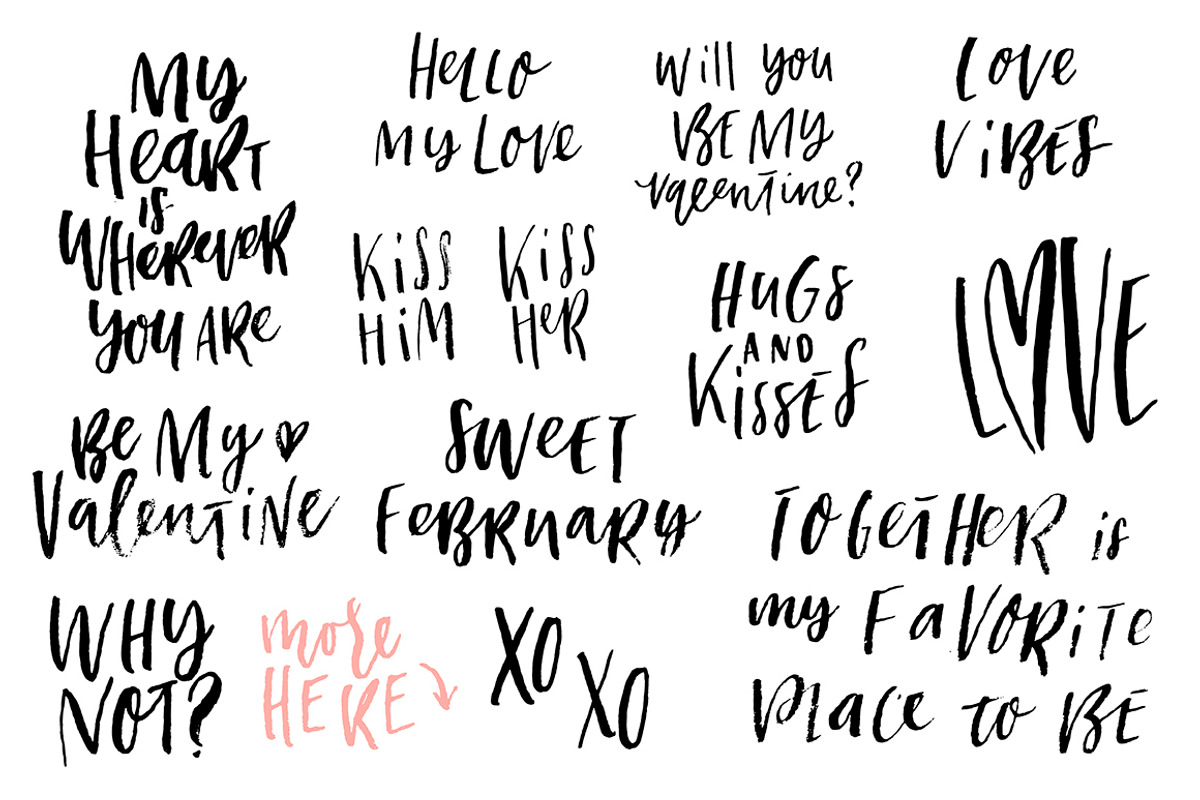 My
HeaRT
is
WHeReveR
you ARe
HeLLO
My Love
will you
BE MY
valentine?
Love
ViBES
KiSS
HiM
KiSS
HeR
HuGS
AND
KissES
LOVE
Be My
ValenTiNe
SweET
FeBRuaRy
TOGeTHeR is
my FaVORiTe
Place to BE
WHY
NOT?
more
HERE
XO
XO